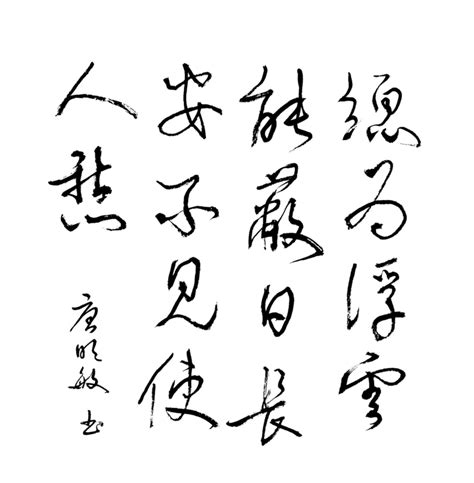 總為浮雲
能蔽日長
安不見使
人愁
唐明敏书